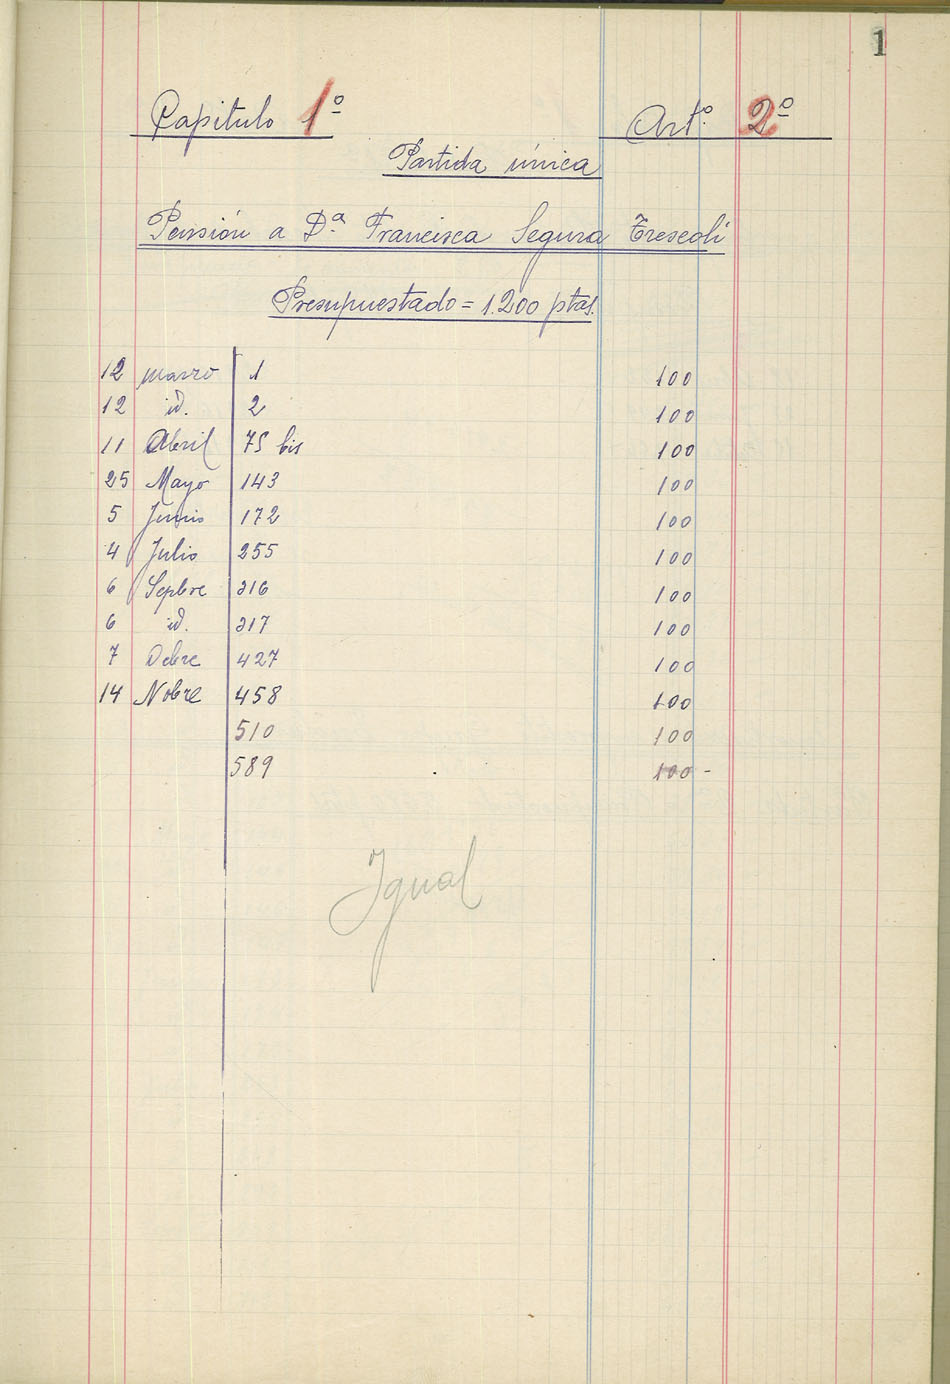 1
Capitulo 1º Artº. 2º
Partida única
Pensión a Dª. Francisca Segura Trescolí
Presupuestado = 1.200 ptas.
12 marzo 1 100
12 id. 2 100
11 Abril 75 bis 100
25 Mayo 143 100
5 Junio 172 100
4 Julio 255 100
6 Sepbre 316 100
6 id. 317 100
7 Ocbre 427 100
14 Nobre 458 100
510 100
589 100-
Igual